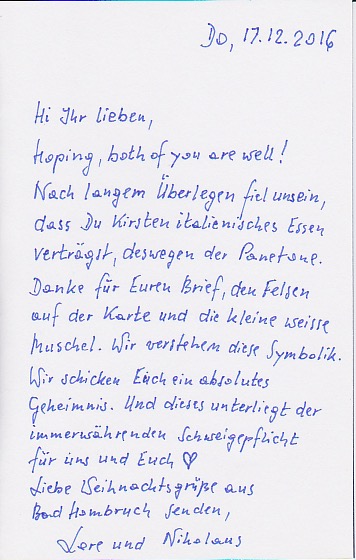 Do, 17.12.2016
Hi Ihr lieben,
Hoping, both of you are well!
Nach langem Überlegen fiel uns ein,
dass Du Kirsten italienisches Essen
verträgst, deswegen der Panetone.
Danke für Euren Brief, den Felsen
auf der Karte und die kleine weisse
Muschel. Wir verstehen diese Symbolik.
Wir schicken Euch ein absolutes
Geheimnis. Und dieses unterliegt der
immerwährenden Schweigepflicht
für uns und Euch ♡
Liebe Weihnachtsgrüße aus
Bad Hombruch senden,
Lore und Nikolaus